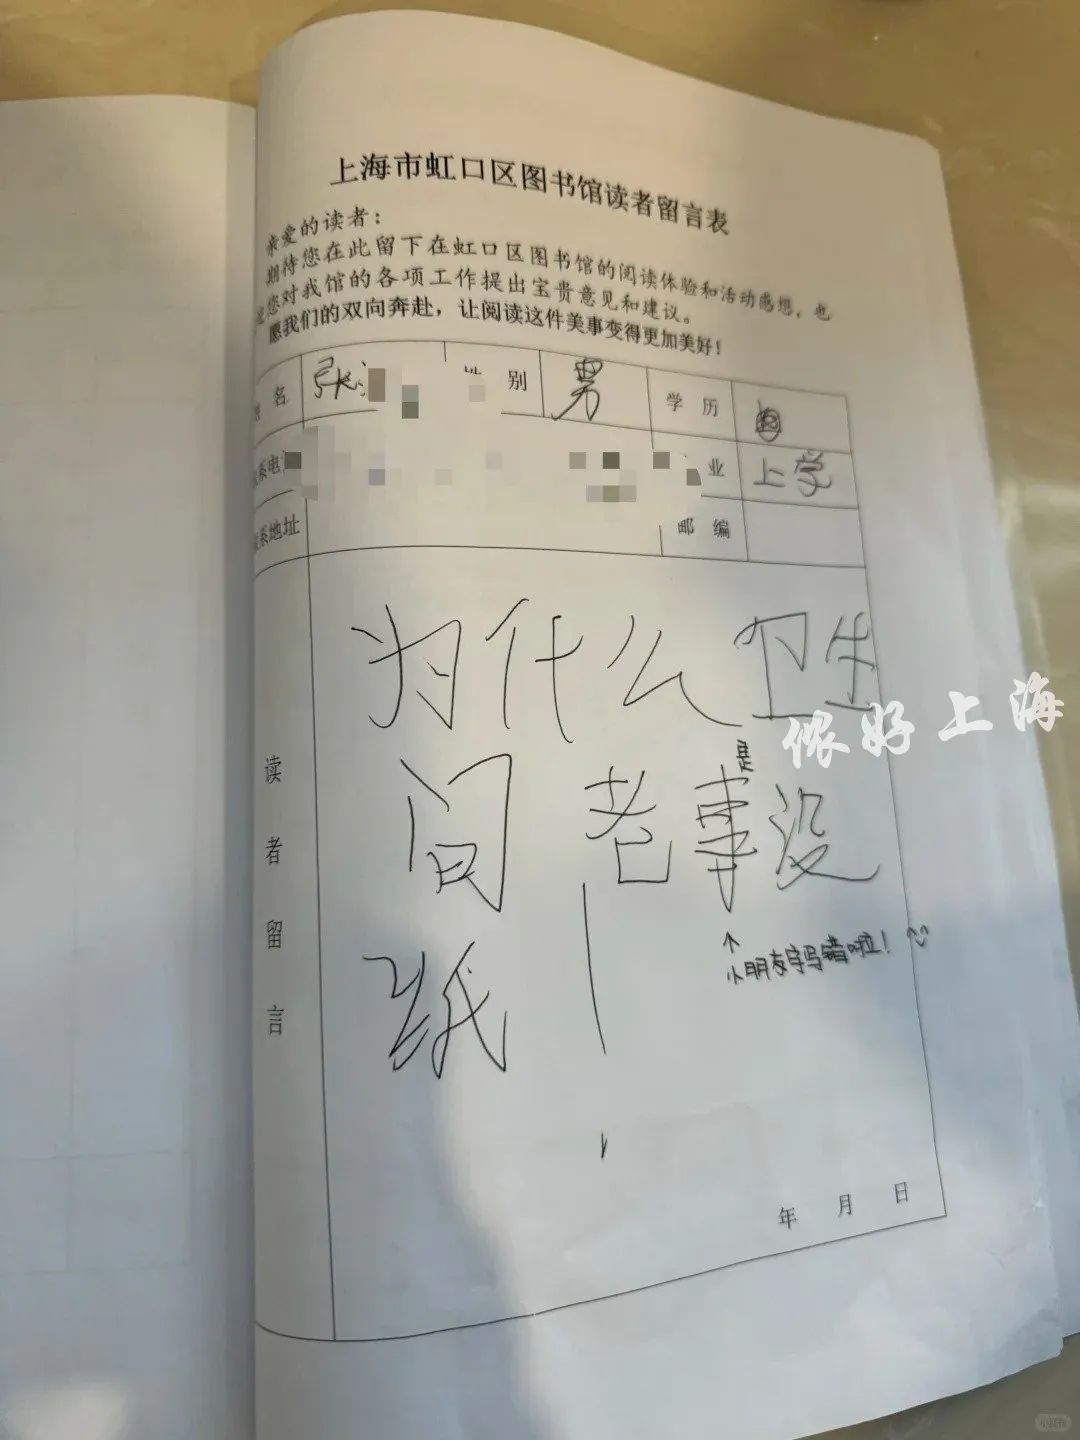 上海市虹口区图书馆读者留言表
亲爱的读者：
期待您在此留下在虹口区图书馆的阅读体验和活动感想，也
您对我馆的各项工作提出宝贵意见和建议。
愿我们的双向奔赴，让阅读这件美事变得更加美好！
名 张 性 别 男 学 历
系电 业 上学
系地址 邮 编
读者留言
为什么卫生
间老事没
是
纸！
↑
小朋友字写错啦！
年 月 日
侬好上海
小红书